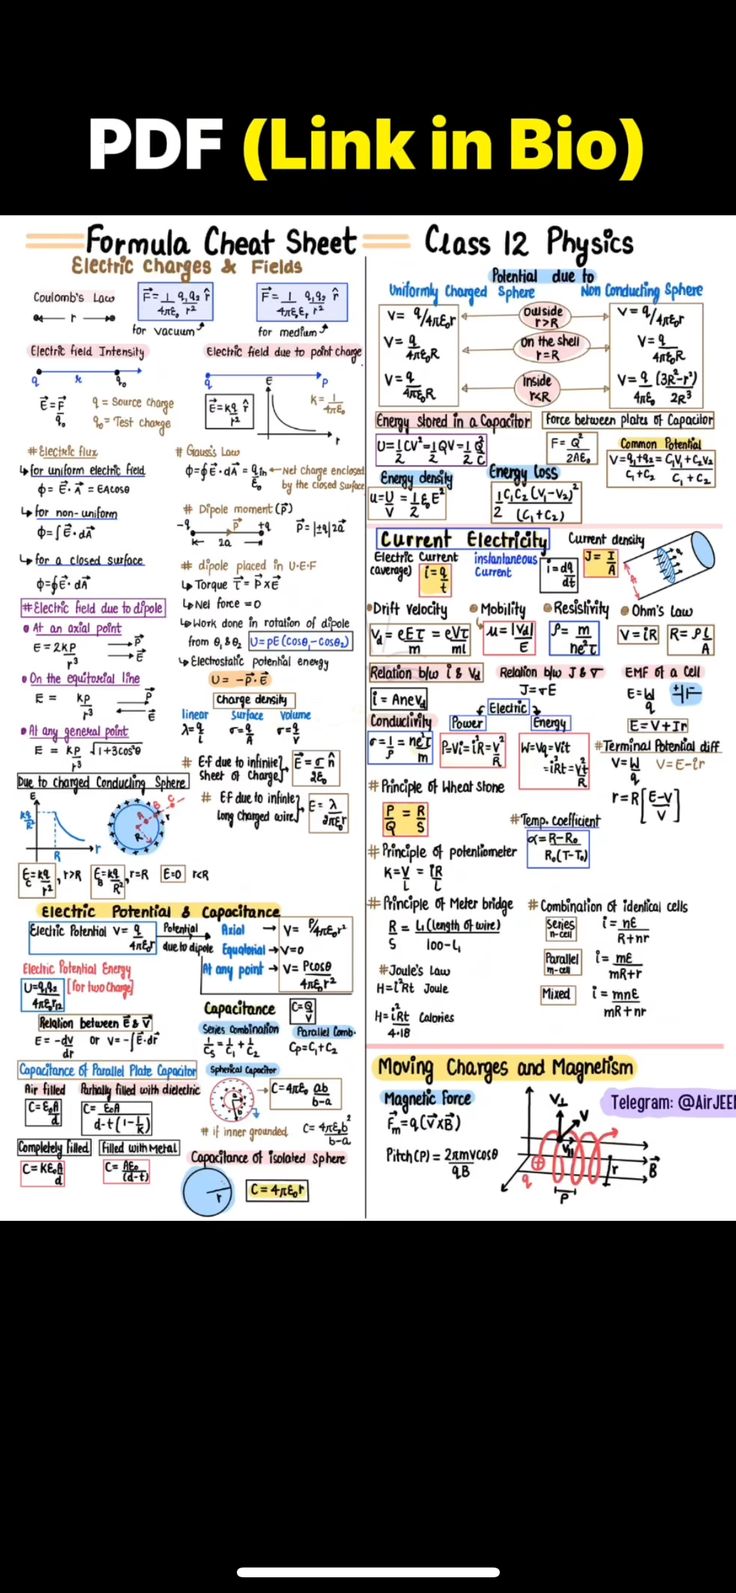 PDF (Link in Bio)
Formula Cheat Sheet
Electric Charges & Fields
Coulomb's Law
F⃗ = 1/4πε₀ q₁q₂/r² r̂
for vacuum
F⃗ = 1/4πε₀εᵣ q₁q₂/r² r̂
for medium
r
Electric field Intensity
q r q₀
E⃗ = F⃗/q₀
q = Source charge
q₀ = Test charge
Electric field due to point charge
q P
E⃗ = kq/r² r̂
E
r
K = 1/4πε₀
# Electric flux
↳ for uniform electric field
ϕ = E⃗ · A⃗ = EAcosθ
↳ for non-uniform
ϕ = ∫E⃗ · dA⃗
↳ for a closed surface
ϕ = ∮E⃗ · dA⃗
# Gauss's Law
ϕ = ∮E⃗ · dA⃗ = qin/ε₀ ← Net charge enclosed
by the closed surface
# Dipole moment (P⃗)
-q P⃗ +q
2a
P⃗ = |±q|2a⃗
# dipole placed in U.E.F
↳ Torque τ⃗ = P⃗ x E⃗
↳ Net force = 0
↳ Work done in rotation of dipole
from θ₁ & θ₂ U = pE (cosθ₁ - cosθ₂)
↳ Electrostatic potential energy
U = -P⃗ · E⃗
# Electric field due to dipole
• At an axial point
E = 2KP/r³
P⃗
E⃗
• On the equitorial line
E = kp/r³
P⃗
E⃗
• At any general point
E = KP/r³ √1+3cos²θ
Charge density
linear Surface Volume
λ = q/l σ = q/A σ = q/V
# EF due to infinite sheet of charge E⃗ = σ/2ε₀ n̂
# EF due to infinite long charged wire E = λ/2πε₀r
Due to Charged Conducting Sphere
E
kq/R²
R r
A B C
R
E_C = kq/r², r>R
E_B = kq/R², r=R
E=0 r<R
Electric Potential & Capacitance
Electric Potential V = q/4πε₀r
Potential due to dipole
Axial → V = P/4πε₀r²
Equatorial → V=0
At any point → V = Pcosθ/4πε₀r²
Electric Potential Energy
U = q₁q₂/4πε₀r₁₂ [for two Charge]
Relation between E⃗ & V⃗
E = -dv/dr or V = -∫E⃗·dr⃗
Capacitance C = Q/V
Series Combination
1/Cs = 1/C₁ + 1/C₂
Parallel Comb.
Cp = C₁ + C₂
Capacitance of Parallel Plate Capacitor
Air filled
C = ε₀A/d
Partially filled with dielectric
C = ε₀A/d-t(1-1/k)
Completely filled
C = Kε₀A/d
Filled with Metal
C = Aε₀/(d-t)
Spherical Capacitor
C = 4πε₀ ab/b-a
# if inner grounded C = 4πε₀b²/b-a
Capacitance of isolated sphere
r
C = 4πε₀r
Class 12 Physics
Potential due to
Uniformly Charged Sphere Non Conducting Sphere
V = q/4πε₀r Outside r>R V = q/4πε₀r
V = q/4πε₀R On the shell r=R V = q/4πε₀R
V = q/4πε₀R Inside r<R V = q/4πε₀ (3R²-r²)/2R³
Energy stored in a Capacitor
U = 1/2 CV² = 1/2 QV = 1/2 Q²/C
Force between plates of Capacitor
F = Q²/2Aε₀
Common Potential
V = q₁+q₂/C₁+C₂ = C₁V₁+C₂V₂/C₁+C₂
Energy density
u = U/V = 1/2 ε₀E²
Energy loss
1/2 C₁C₂(V₁-V₂)²/(C₁+C₂)
Current Electricity
Electric Current (average) i = q/t
instantaneous Current i = dq/dt
Current density
J = I/A
• Drift Velocity
Vd = eEτ/m = eVτ/ml
• Mobility
μ = |Vd|/E
• Resistivity
ρ = m/ne²τ
• Ohm's Law
V = iR R = ρL/A
Relation b/w i & Vd
i = AneVd
Relation b/w J & σ
J = σE
EMF of a Cell
E = W/q
E = V + Ir
Conductivity
σ = 1/ρ = ne²τ/m
Electric
Power
P = Vi = i²R = V²/R
Energy
W = Vq = Vit
= i²Rt = V²t/R
# Terminal Potential diff
V = W/q V = E-ir
r = R[E-V/V]
# Principle of Wheat stone
P/Q = R/S
# Temp. coefficient
α = R-R₀/R₀(T-T₀)
# Principle of potentiometer
K = V/L = iR/L
# Principle of Meter bridge
R/S = L₁(length of wire)/100-L₁
# Combination of identical cells
Series n-cell i = nE/R+nr
Parallel m-cell i = mE/mR+r
Mixed i = mnE/mR+nr
# Joule's Law
H = i²Rt Joule
H = i²Rt/4.18 Calories
Moving Charges and Magnetism
Magnetic Force
F⃗m = q(V⃗xB⃗)
Pitch(P) = 2πmvcosθ/qB
V⊥ V
V||
q P r B⃗
Telegram: @AirJEE